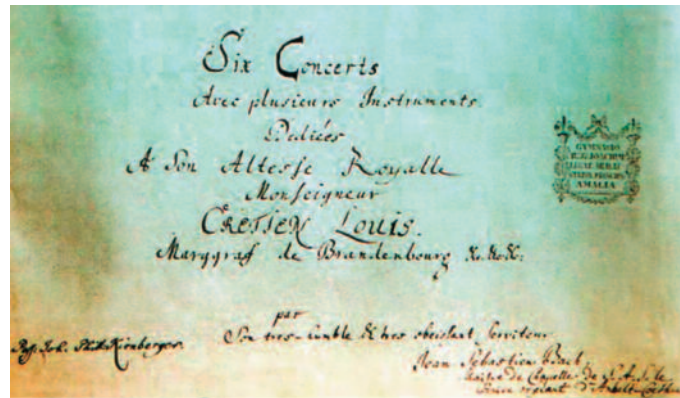 Six Concerts
Avec plusieurs Instruments.
Dediées
A Son Altesse Royalle
Monseigneur
CRETIEN Louis.
Marggraf de Brandenbourg &c.&c.&c:
par
Son tres-humble & tres obeissant Serviteur
Jean Sebastien Bach.
Maitre de Chapelle de S. A. S. le
Prince regnant d'Anhalt-Coethen
Joh. Kirnberger.
GYMNASIO
AMALIA